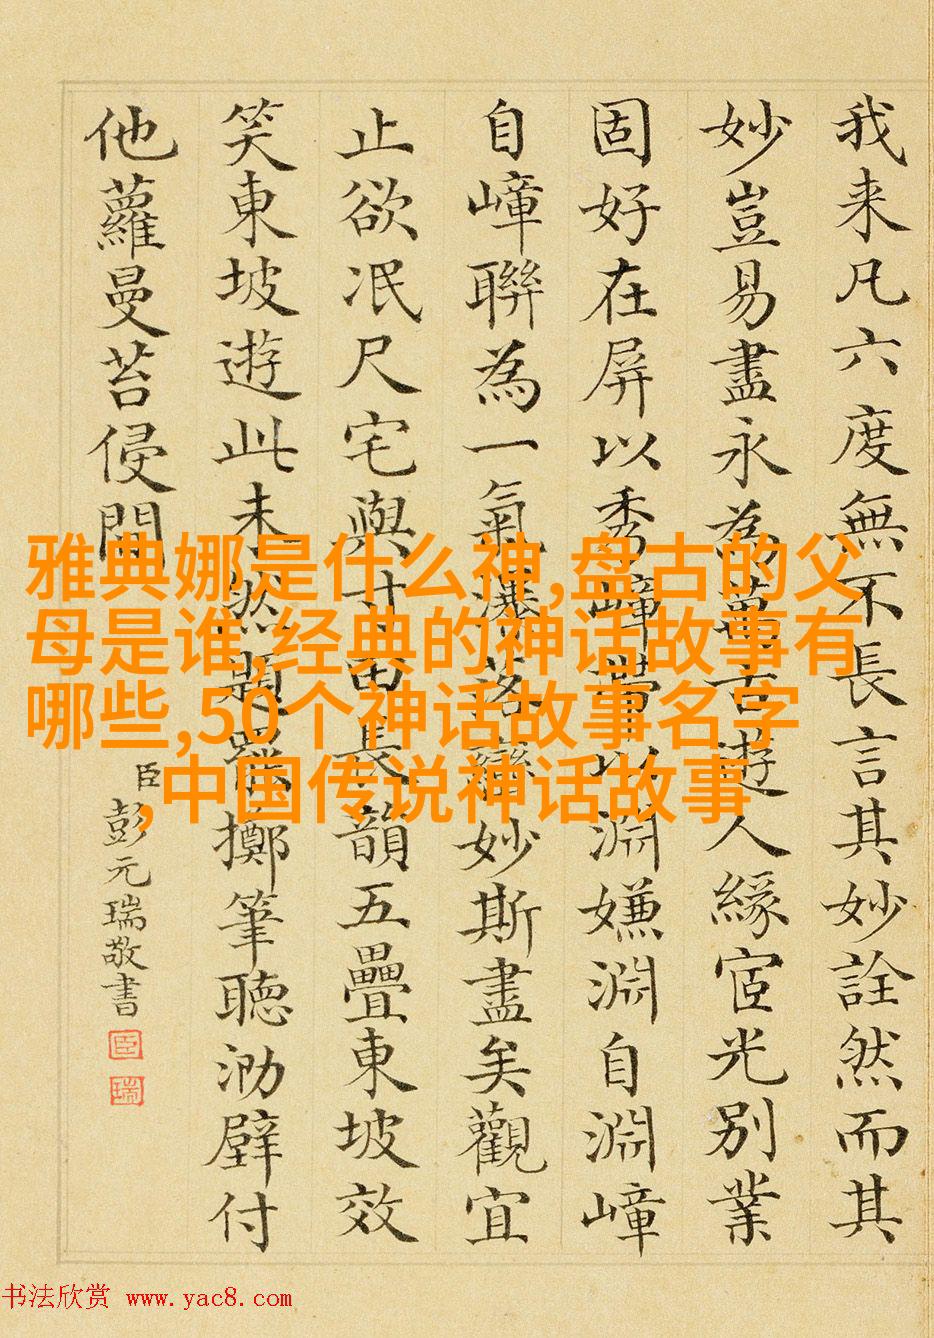 我来凡六度無不長言其妙詮然而其
妙豈易盡永為萬古遊人緣宧光別業
固好在屏以秀嶂帶以淵嫌淵自淵嶂
自嶂聯為一氣落妙斯盡矣觀宜
止欲冺尺宅與寸田長韻五疊東坡效
笑東坡遊此未然題罷擲筆聽泐壁付
他蘿曼苔侵間
臣彭元瑞敬書
臣
瑞
雅典娜是什么神,盘古的父
母是谁,经典的神话故事有
哪些,50个神话故事名字
,中国传说神话故事
书法欣赏 www.yac8.com